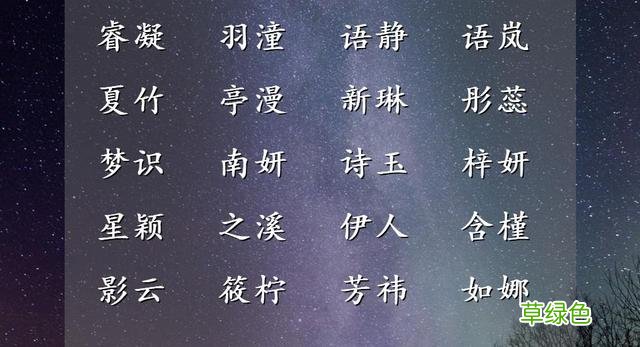 睿凝 羽潼 语静 语岚
夏竹 亭漫 新琳 彤蕊
梦识 南妍 诗玉 梓妍
星颖 之溪 伊人 含槿
影云 筱柠 芳祎 如娜
草绿色